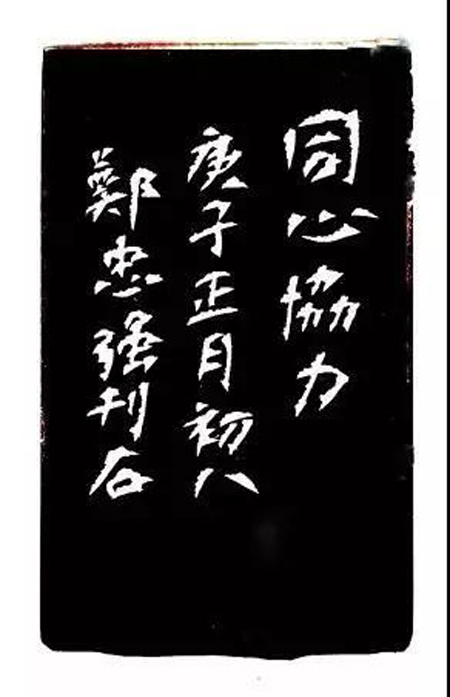 同心協力
庚子正月初八
鄭忠强刊石